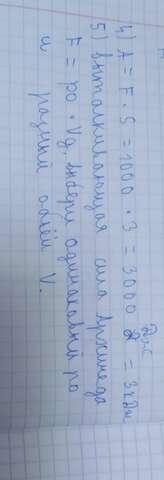 4) A = F · S = 1000 · 3 = 3000 Дж = 3 кДж
5) Выталкивающая сила Архимеда
F = po · Vg, выбери одинаковый po
и разный объём V.